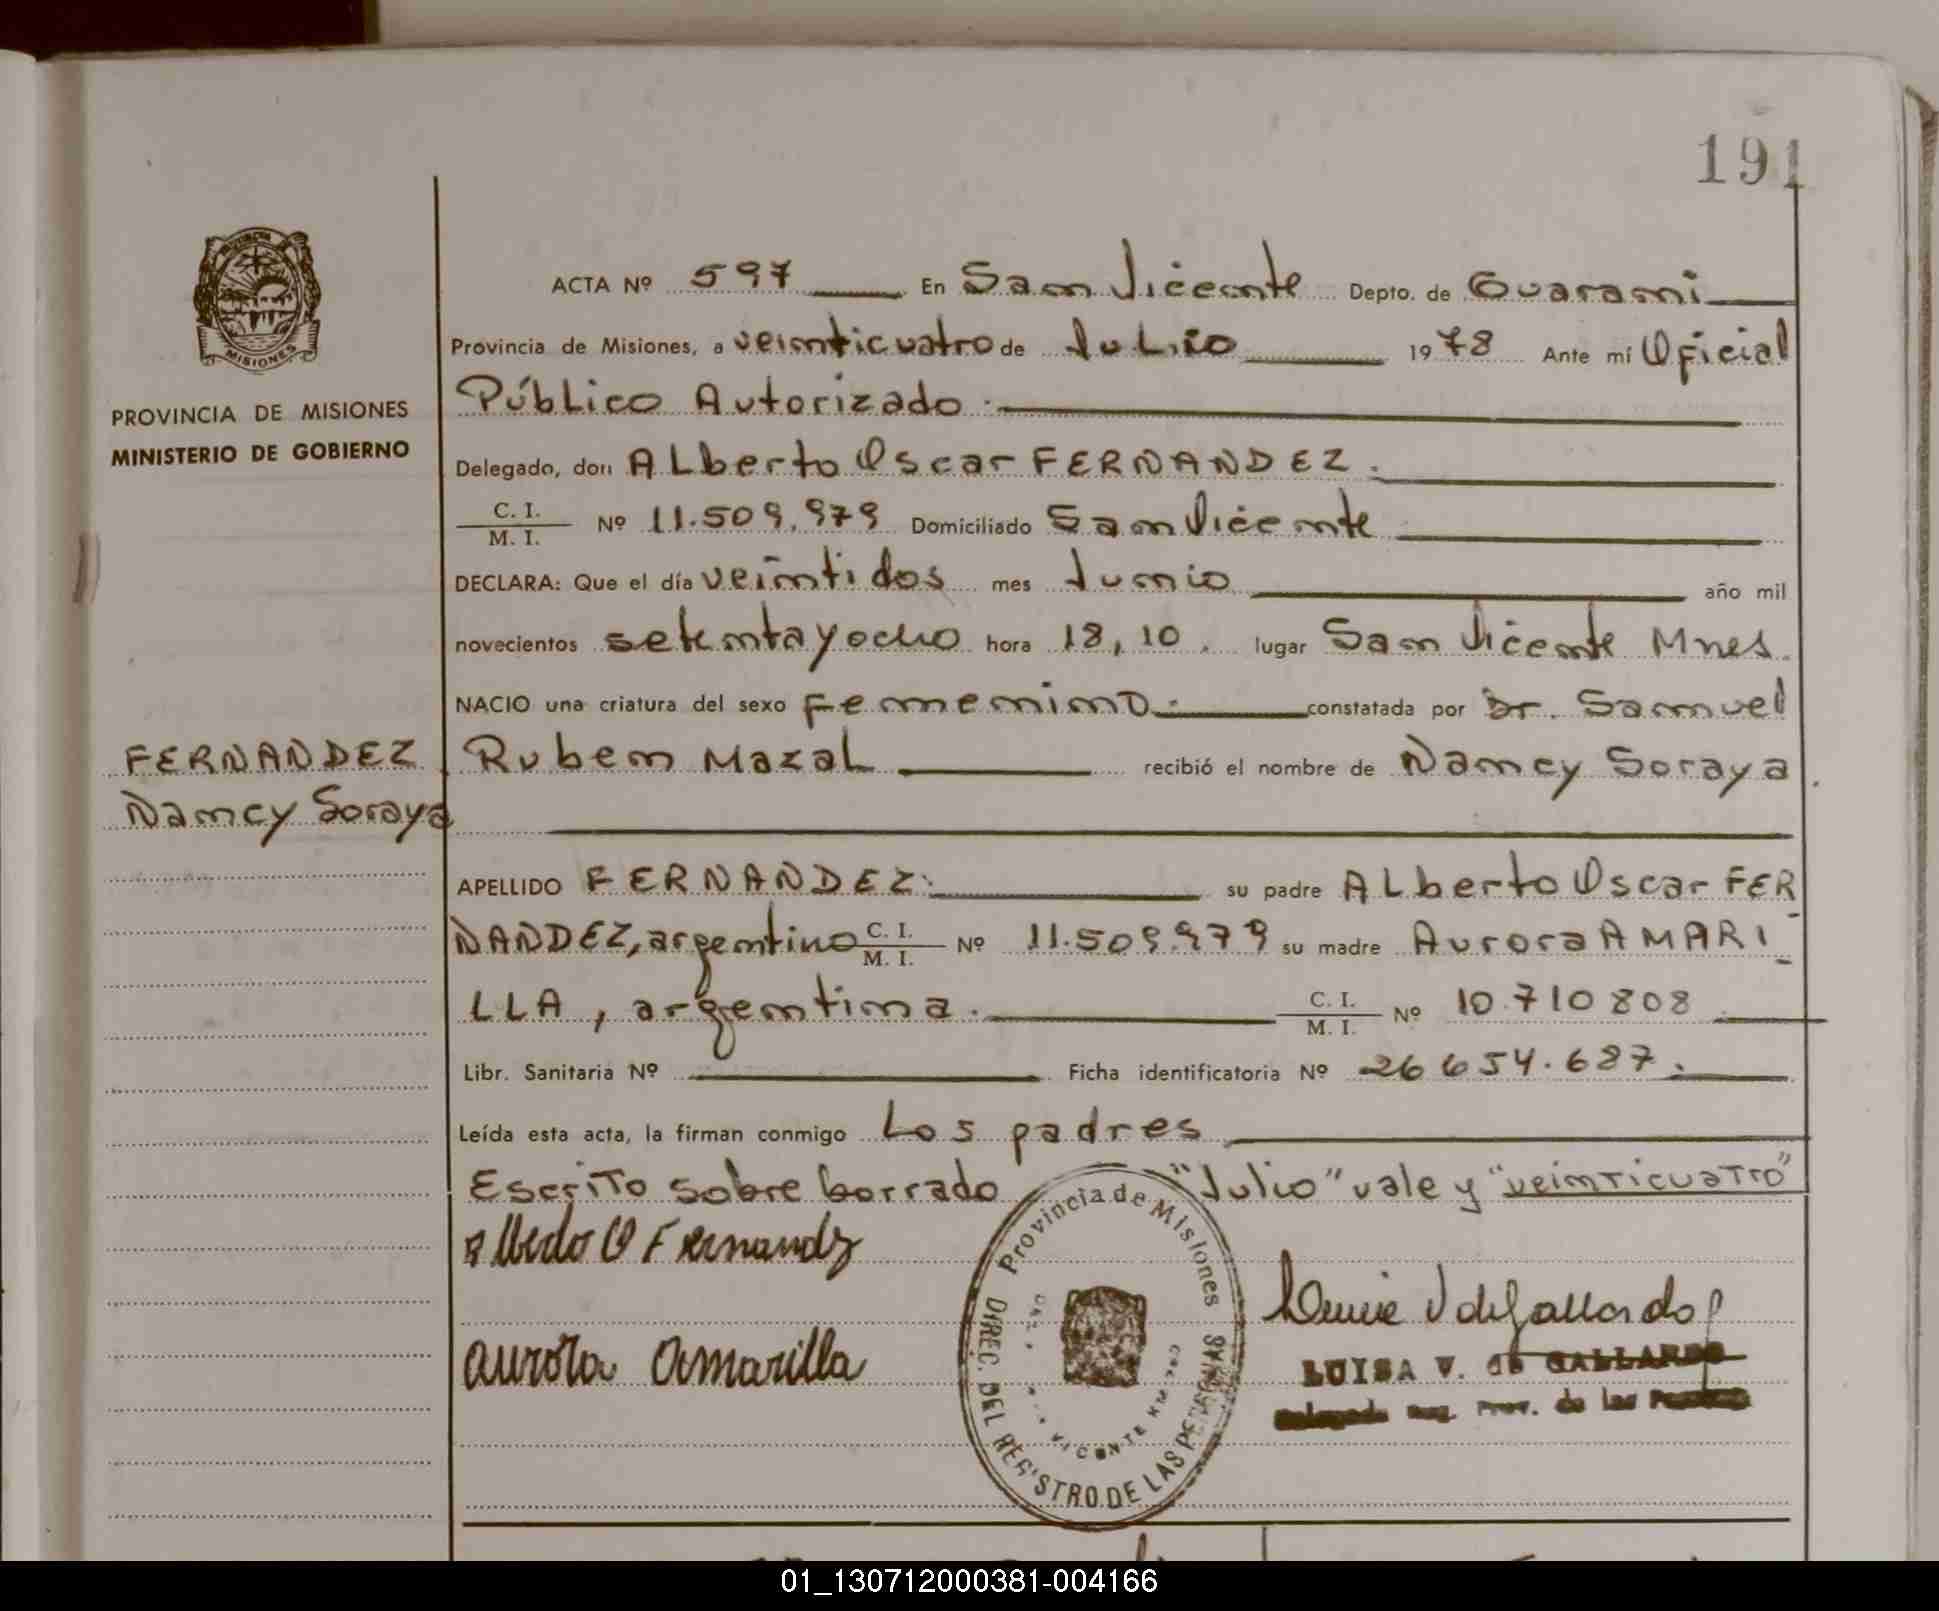 191
ACTA Nº 597 En San Vicente Depto. de Guarani
Provincia de Misiones, a veinticuatro de Julio 1978 Ante mí Oficial
Público Autorizado
PROVINCIA DE MISIONES
MINISTERIO DE GOBIERNO
Delegado, don Alberto Oscar FERNANDEZ.
C. I.
M. I. Nº 11.509.979 Domiciliado San Vicente
DECLARA: Que el día veintidos mes Junio año mil
novecientos setenta y ocho hora 18,10. lugar San Vicente Mnes.
NACIO una criatura del sexo femenino.- constatada por Dr. Samuel
FERNANDEZ
Nancy Soraya
Ruben Mazal recibió el nombre de Nancy Soraya
APELLIDO FERNANDEZ su padre Alberto Oscar FER
NANDEZ, argentino C. I. M. I. Nº 11.509.979 su madre Aurora AMARI
LLA, argentina. C. I. M. I. Nº 10.710 808
Libr. Sanitaria Nº Ficha identificatoria Nº 26 654.687.
Leída esta acta, la firman conmigo Los padres
Escrito sobre borrado "Julio" vale y "veinticuatro"
Provincia de Misiones
DIREC. DEL REGISTRO DE LAS PERSONAS
Aurora Amarilla
LUISA V. de GALLARDO
MISIONES
01_130712000381-004166